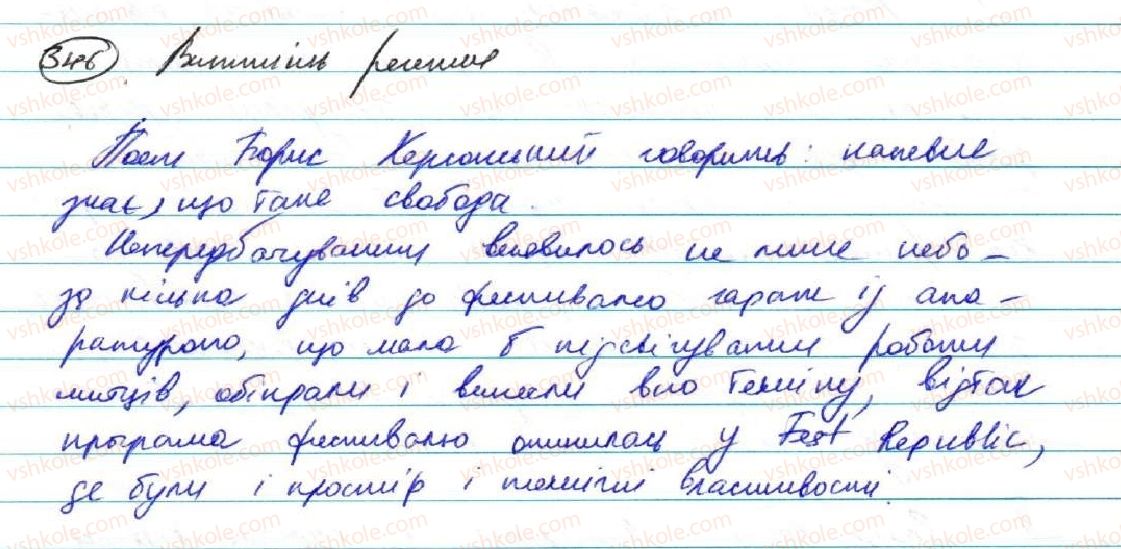 346. Випишіть речення
Поет Борис Херсонський говорить: напевне
знає, що таке свобода.
Непередбачуваним виявилось не лише небо –
за кілька днів до фестивалю гараж із апа–
ратурою, що мала б підсвічувати роботи
митців, обікрали і винесли всю техніку, відтак
програма фестивалю опинилась у Fest Republic,
де були і простір і технічні властивості.